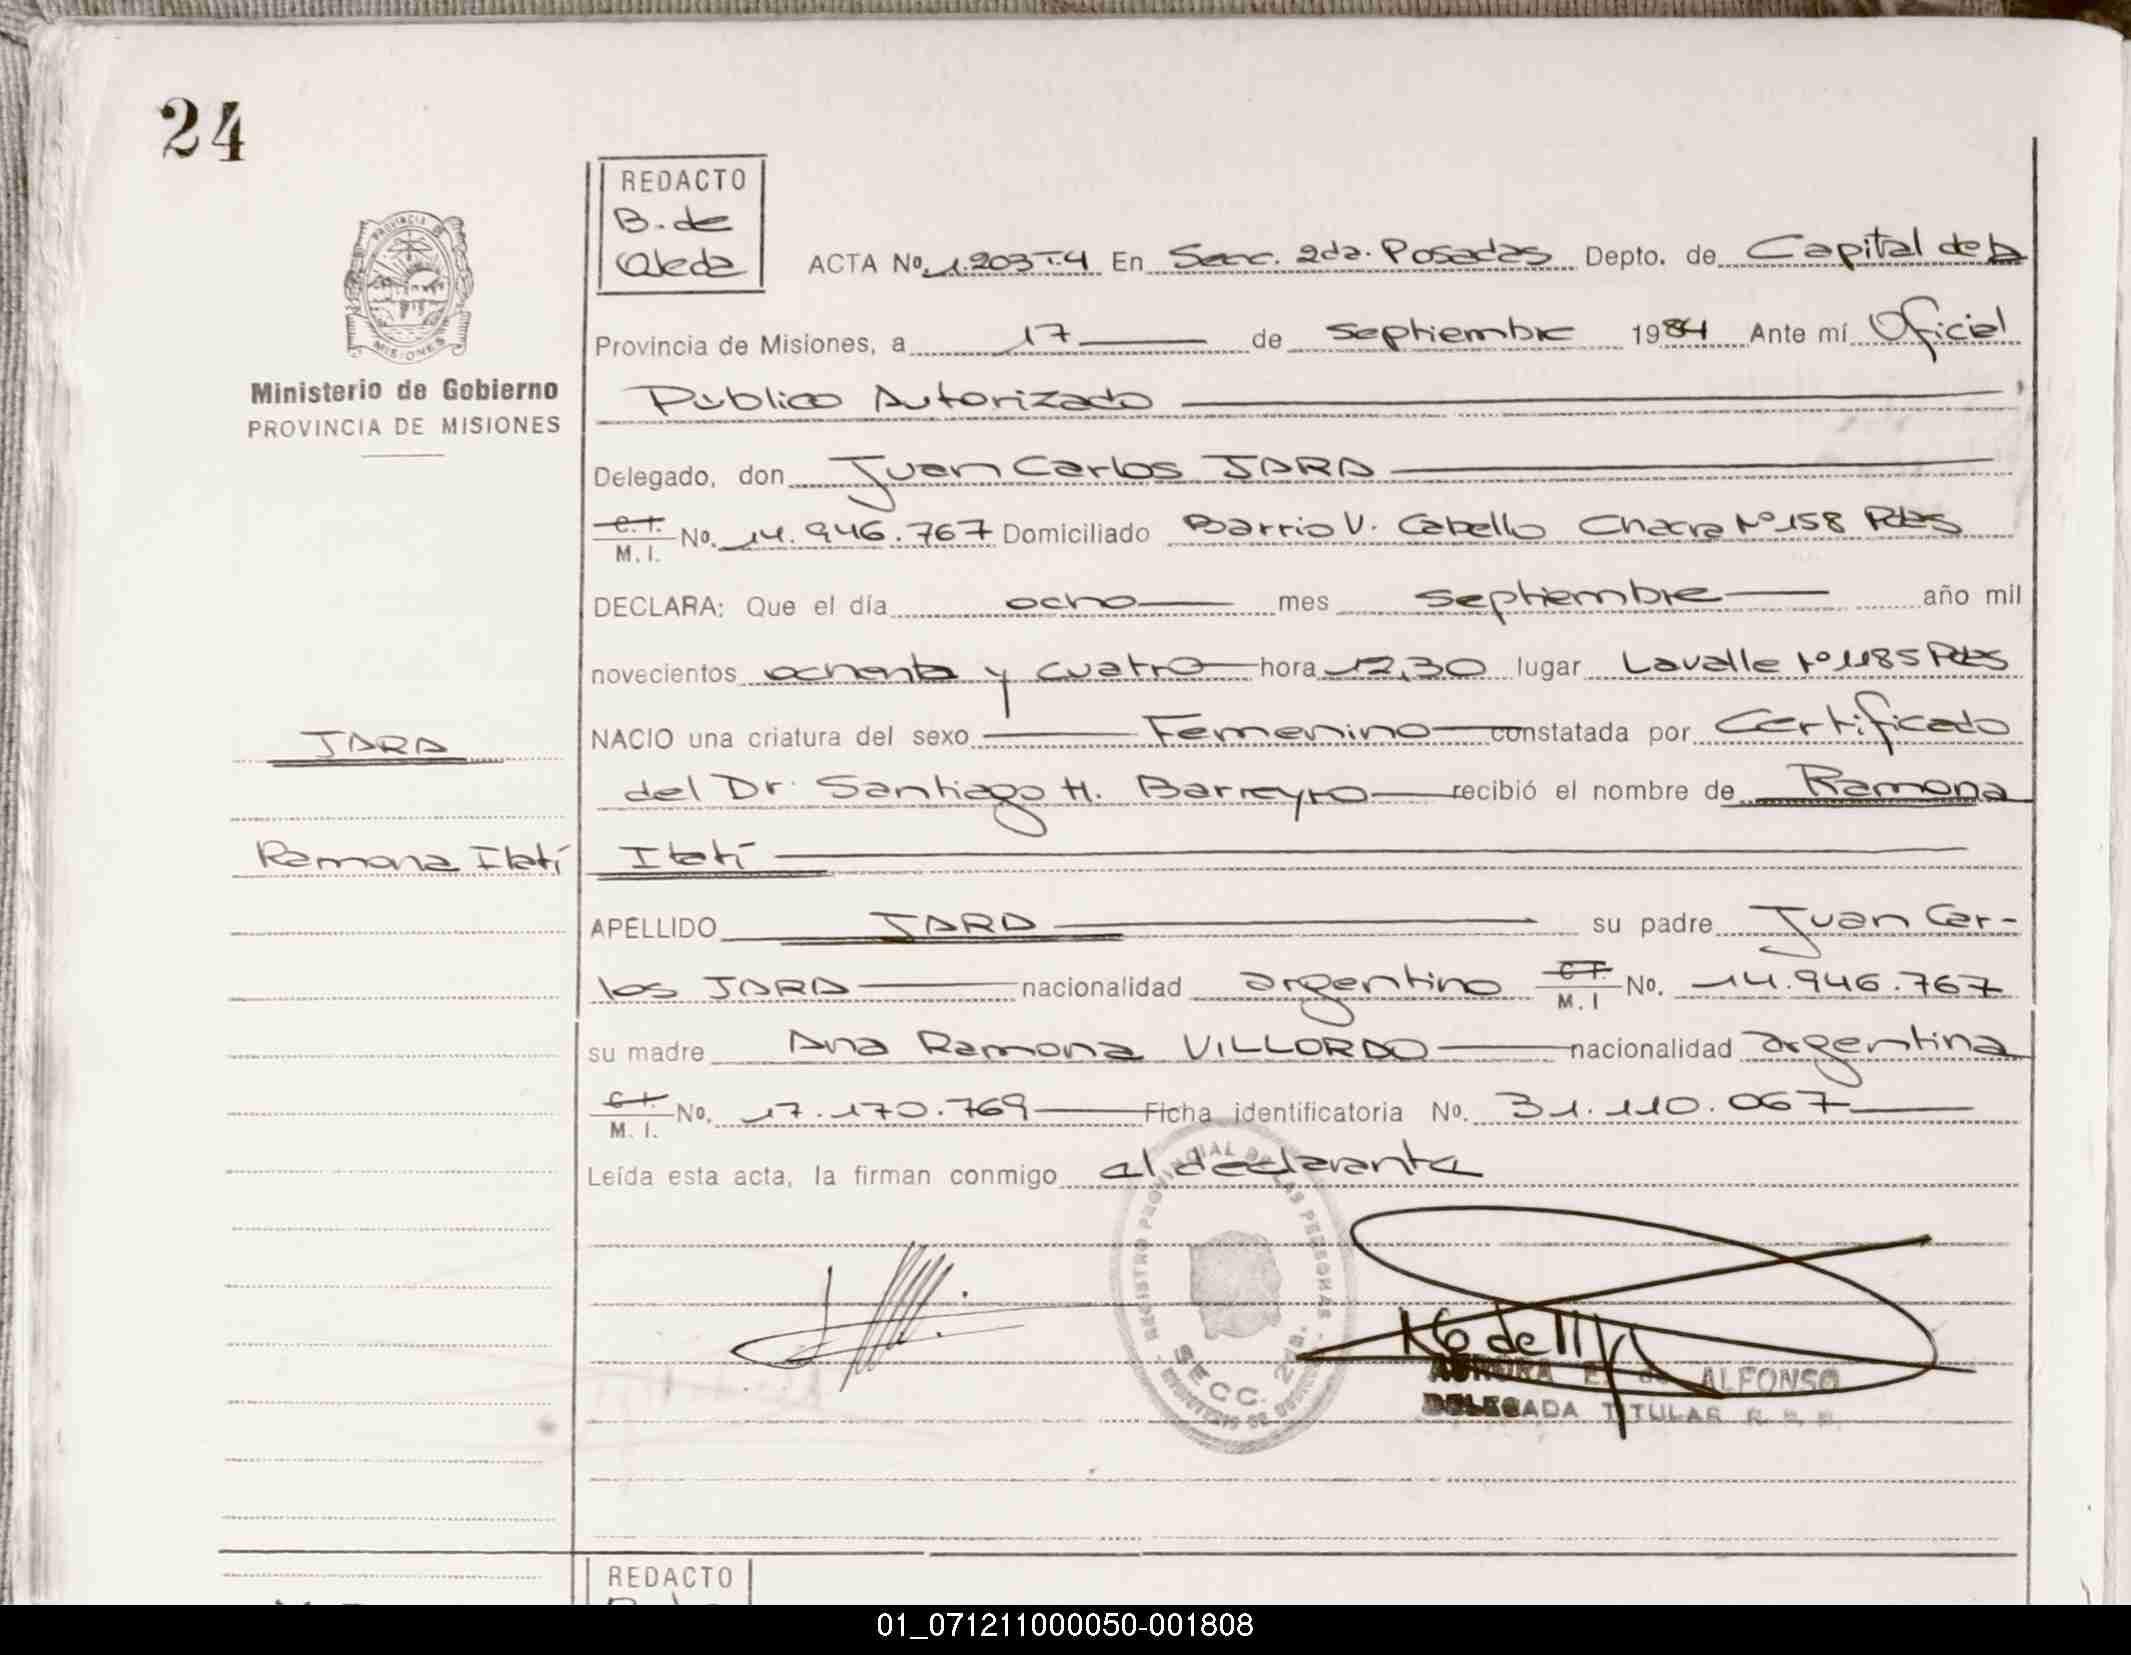 24
PROVINCIA DE
MISIONES
Ministerio de Gobierno
PROVINCIA DE MISIONES
REDACTO
B. de
Ojeda
ACTA No. 1.203 T.4 En Secc. 2da. Posadas Depto. de Capital de la
Provincia de Misiones, a 17 de septiembre 1984 Ante mí Oficial
Público Autorizado
Delegado, don Juan Carlos JARA
C. I.
M. I. No. 14.946.767 Domiciliado Barrio V. Cabello Chacra Nº 158 Pdas
DECLARA: Que el día ocho mes septiembre año mil
novecientos ochenta y cuatro hora 12,30 lugar Lavalle Nº 1185 Pdas
NACIO una criatura del sexo Femenino constatada por Certificado
JARA
del Dr. Santiago H. Barreyro recibió el nombre de Ramona
Ramona Itatí
Itatí
APELLIDO JARA su padre Juan Car-
los JARA nacionalidad argentino C I.
M. I No. 14.946.767
su madre Ana Ramona VILLORDO nacionalidad argentina
C I.
M. I. No. 17.170.769 Ficha identificatoria No. 31.110.067
Leída esta acta, la firman conmigo el declarante
REGISTRO PROVINCIAL DE LAS PERSONAS
SECC. 2da.
AURORA E. de ALFONSO
DELEGADA TITULAR R. P. P.
REDACTO
01_071211000050-001808